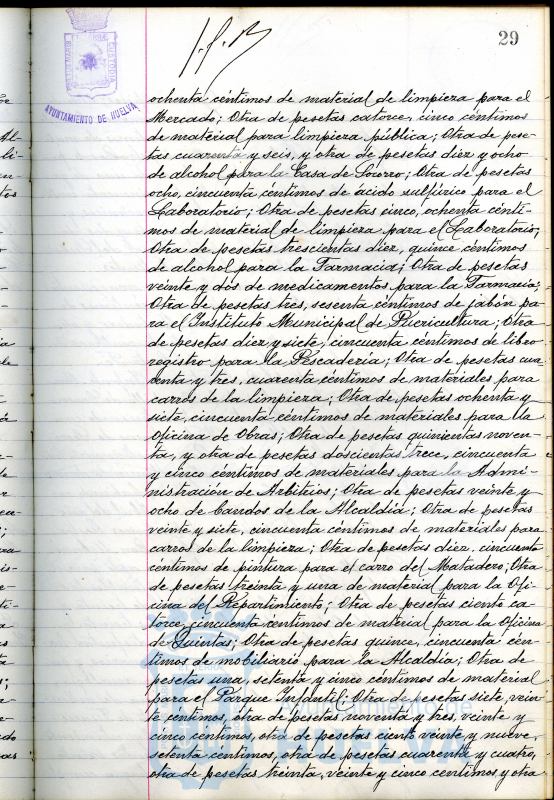 29
AYUNTAMIENTO DE HUELVA
ochenta céntimos de material de limpieza para el
Mercado; Otra de pesetas catorce, cinco céntimos
de material para limpieza pública; Otra de pese-
tas cuarenta y seis, y otra de pesetas diez y ocho
de alcohol para la Casa de Socorro; Otra de pesetas
ocho, cincuenta céntimos de ácido sulfúrico para el
Laboratorio; Otra de pesetas cinco, ochenta cénti-
mos de material de limpieza para el Laboratorio;
Otra de pesetas trescientas diez, quince céntimos
de alcohol para la Farmacia; Otra de pesetas
veinte y dos de medicamentos para la Farmacia;
Otra de pesetas tres, sesenta céntimos de jabón pa-
ra el Instituto Municipal de Puericultura; Otra
de pesetas diez y siete, cincuenta céntimos de libro
registro para la Pescadería; Otra de pesetas cua-
renta y tres, cuarenta céntimos de materiales para
carros de la limpieza; Otra de pesetas ochenta y
siete, cincuenta céntimos de materiales para la
Oficina de Obras; Otra de pesetas quinientas noven-
ta, y otra de pesetas doscientas trece, cincuenta
y cinco céntimos de materiales para la Admi-
nistración de Arbitrios; Otra de pesetas veinte y
ocho de bandos de la Alcaldía; Otra de pesetas
veinte y siete, cincuenta céntimos de materiales para
carros de la limpieza; Otra de pesetas diez, cincuenta
céntimos de pintura para el carro del Matadero; Otra
de pesetas treinta y una de material para la Ofi-
cina del Repartimiento; Otra de pesetas ciento ca-
torce, cincuenta céntimos de material para la Oficina
de Quintas; Otra de pesetas quince, cincuenta cén-
timos de mobiliario para la Alcaldía; Otra de
pesetas una, setenta y cinco céntimos de material
para el Parque Infantil; Otra de pesetas siete, vein-
te céntimos, otra de pesetas noventa y tres, veinte y
cinco céntimos, otra de pesetas ciento veinte y nueve,
setenta céntimos, otra de pesetas cuarenta y cuatro,
otra de pesetas treinta, veinte y cinco céntimos y otra